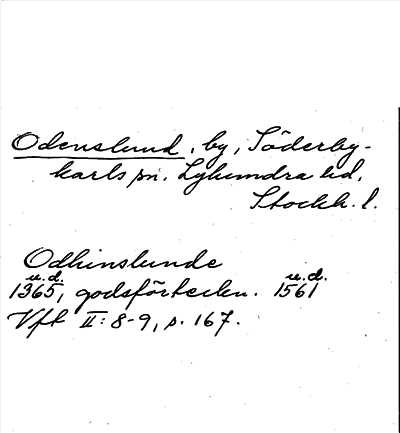 Odenslund, by, Söderby-
karls sn. Lyhundra hd,
Stockh. l.
Odhinslunde
u.d. u.d.
1365, godsförteckn. 1561
Vft II: 8-9, s. 167.